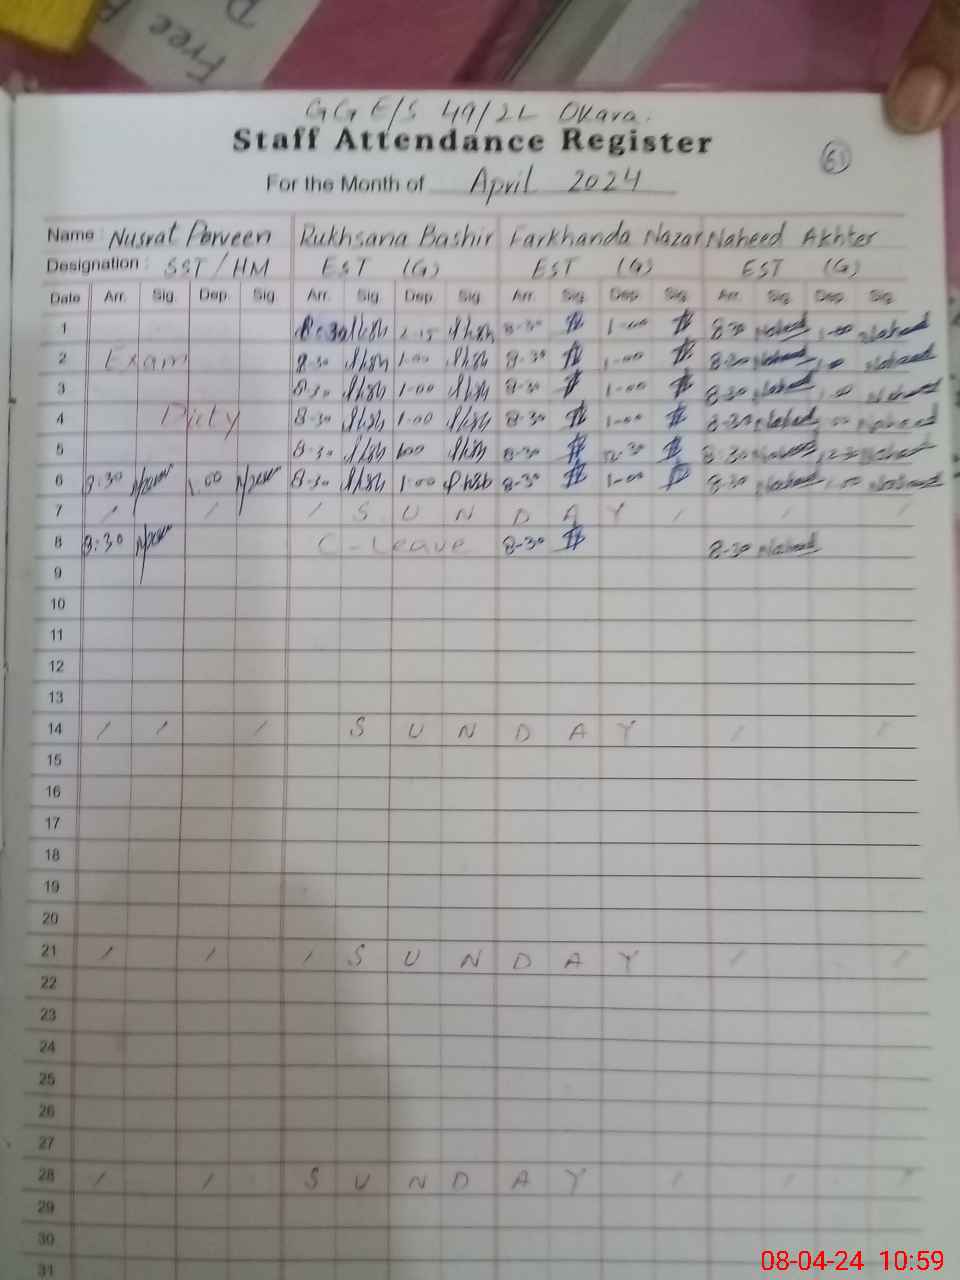 Free
GGE/S 49/2L Okara.
Staff Attendance Register
61
For the Month of April 2024
Name : Nusrat Parveen Rukhsana Bashir Farkhanda Nazar Naheed Akhter
Designation : SST/HM EST (G) EST (G) EST (G)
Date Arr. Sig. Dep. Sig. Arr. Sig. Dep. Sig. Arr. Sig. Dep. Sig. Arr. Sig. Dep. Sig.
1 8:30 2-15 8-30 1-00 8-30 Naheed 1-00 Naheed
2 Exam 8-30 1-00 8-30 1-00 8-30 Naheed Naheed
3 8-30 1-00 8-30 1-00 8-30 Naheed 1-00 Naheed
4 Duty 8-30 1-00 8-30 1-00 8-30 Naheed Naheed
5 8-30 8-30 12-30 8-30 Naheed Naheed
6 8:30 1.00 8-30 1-00 8-30 1-00 8-30 Naheed 1-00 Naheed
7 / / / S U N D A Y / / /
8 8:30 C-Leave 8-30 8-30 Naheed
9
10
11
12
13
14 / / / S U N D A Y / /
15
16
17
18
19
20
21 / / / S U N D A Y / /
22
23
24
25
26
27
28 / / S U N D A Y / / /
29
30
31
08-04-24 10:59